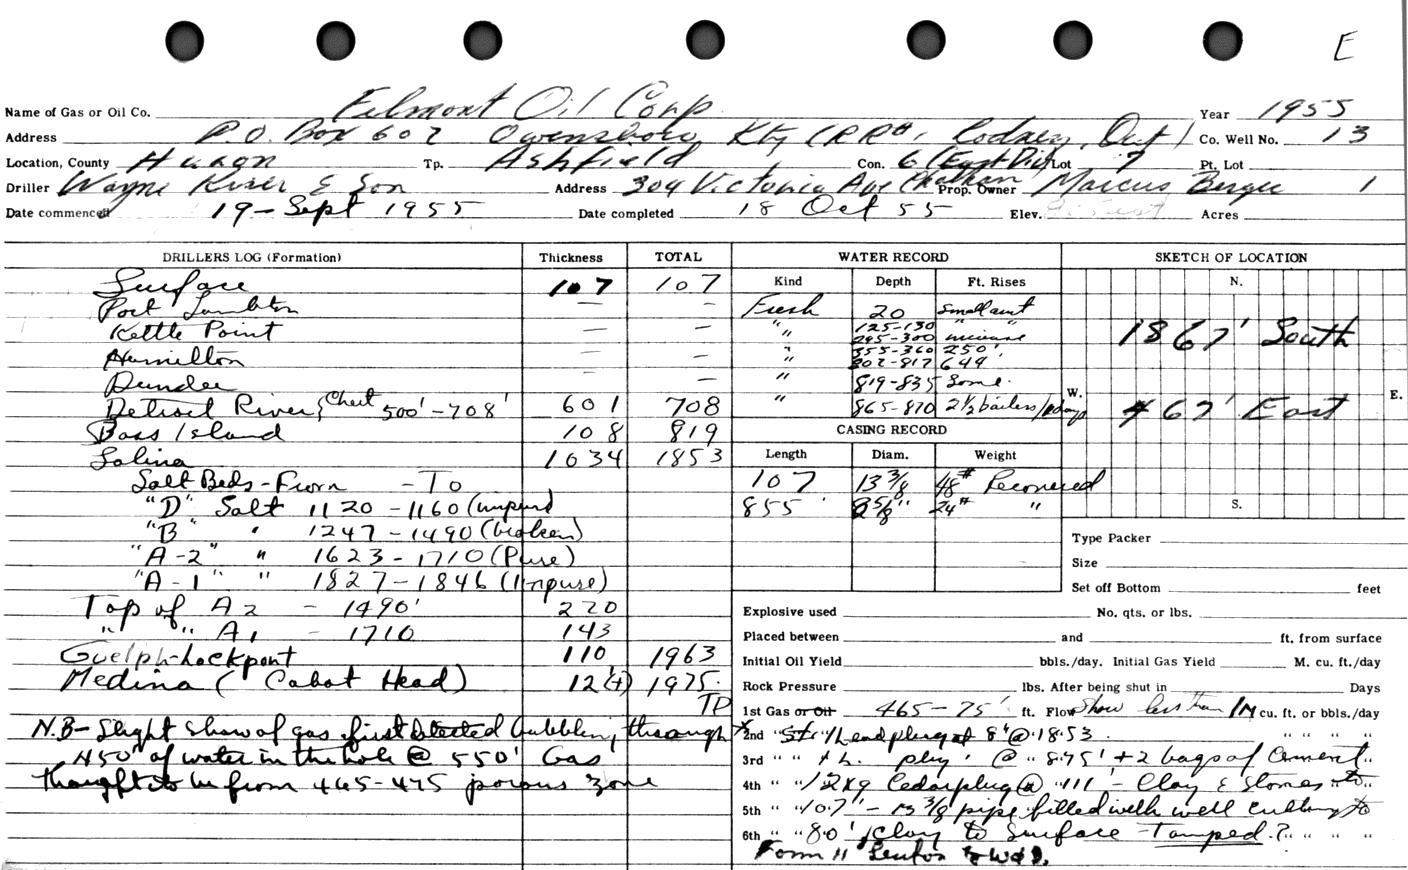 E
Name of Gas or Oil Co. Felmont Oil Corp Year 1955
Address P.O. Box 602 Owensboro, Kty (RR#1 Rodney, Ont) Co. Well No. 13
Location, County Huron Tp. Ashfield Con. 6 (East Div) Lot 7 Pt. Lot
Driller Wayne Kiser & Son Address 304 Victoria Ave Chatham Prop. Owner Marcus Berger 1
Date commenced 19 - Sept 1955 Date completed 18 Oct 55 Elev. Acres
DRILLERS LOG (Formation) Thickness TOTAL WATER RECORD SKETCH OF LOCATION
Kind Depth Ft. Rises N.
Surface 107 107
Port Lambton — — Fresh 20 Small amt
Kettle Point — — " 125-130 " "
" 295-300 increase
Hamilton — — " 355-360 250'
" 802-817 649
Dundee — — " 819-835 Some.
Detroit River, Chert 500'-708' 601 708 " 865-870 2½ bailers/
1867' South
W. E.
467' East
S.
Bass Island 108 819 CASING RECORD
Salina 1034 1853 Length Diam. Weight
Salt Beds - From - To 107 13 3/8 48# Recovered
"D" Salt 1120 - 1160 (impure) 855' 8 5/8" 24# "
"B" " 1247 - 1490 (broken)
"A-2" " 1623 - 1710 (Pure)
"A-1" " 1827 - 1846 (Impure)
Top of A2 - 1490' 220
" " A1 - 1710 143
Guelph-Lockport 110 1963
Medina ( Cabot Head) 12(4) 1975
TD
N.B - Slight show of gas first detected bubbling through
450' of water in the hole @ 550' Gas
thought to be from 465-475 porous zone
Type Packer
Size
Set off Bottom feet
Explosive used No. qts. or lbs.
Placed between and ft. from surface
Initial Oil Yield bbls./day. Initial Gas Yield M. cu. ft./day
Rock Pressure lbs. After being shut in Days
1st Gas or Oil 465-75' ft. Flow Show less than 1 M cu. ft. or bbls./day
2nd " Lead plug at 8" @ 1853 " " " "
3rd " " plug @ 875' + 2 bags of Cement "
4th " " 12 kg Cedar plug @ 111' - Clay & Stones to
5th " " 107' - 13 3/8 pipe filled with well cutting to
6th " " 80', Clay to Surface - Tamped ? " " "
Form 11